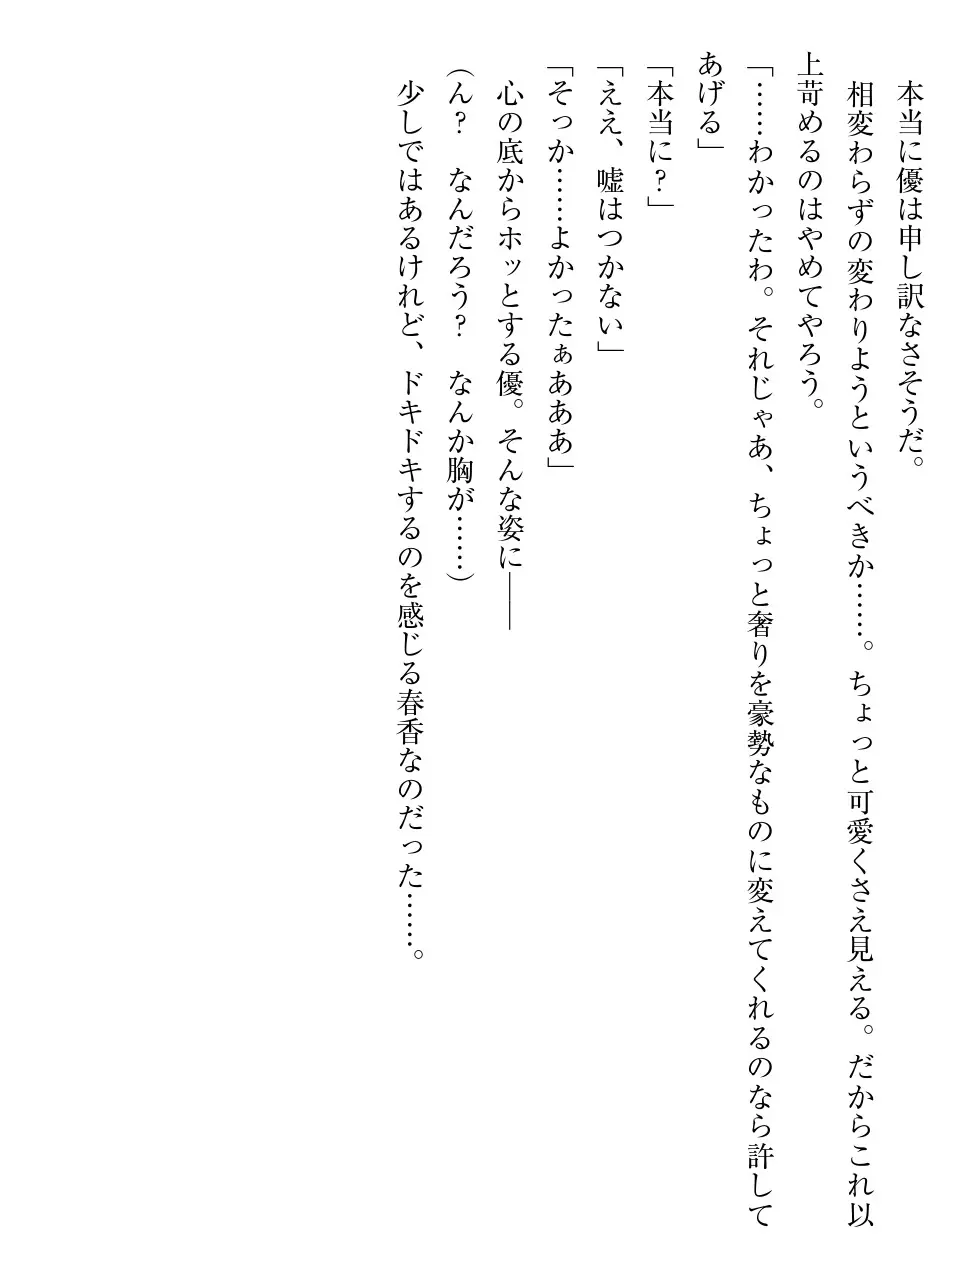 本当に優は申し訳なさそうだ。
　相変わらずの変わりようというべきか……。ちょっと可愛くさえ見える。だからこれ以
上苛めるのはやめてやろう。
「……わかったわ。それじゃあ、ちょっと奢りを豪勢なものに変えてくれるのなら許して
あげる」
「本当に？」
「ええ、嘘はつかない」
「そっか……よかったぁあああ」
　心の底からホッとする優。そんな姿に――
（ん？　なんだろう？　なんか胸が……）
　少しではあるけれど、ドキドキするのを感じる春香なのだった……。